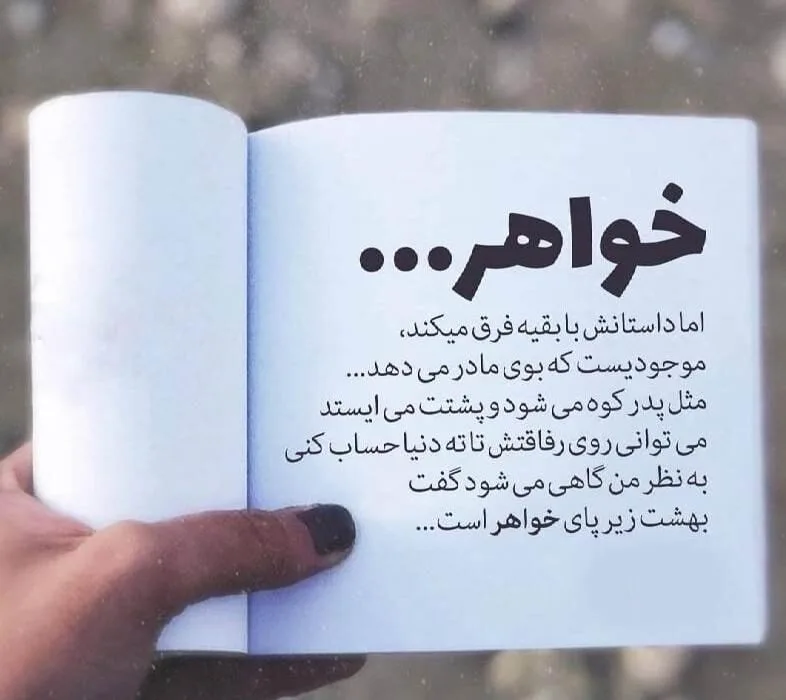 خواهر...
اما داستانش با بقیه فرق میکند،
موجودیست که بوی مادر می دهد...
مثل پدر کوه می شود و پشتت می ایستد
می توانی روی رفاقتش تا ته دنیا حساب کنی
به نظر من گاهی می شود گفت
بهشت زیر پای خواهر است...